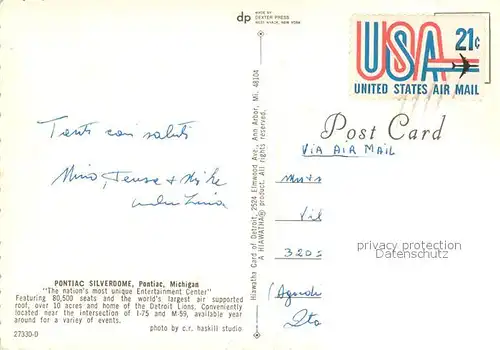 dp
MADE BY
DEXTER PRESS
WEST NYACK, NEW YORK
USA 21¢
UNITED STATES AIR MAIL
Post Card
VIA AIR MAIL
Tanti cari saluti
Nino, &
PONTIAC SILVERDOME, Pontiac, Michigan
"The nation's most unique Entertainment Center"
Featuring 80,500 seats and the world's largest air supported
roof, over 10 acres and home of the Detroit Lions. Conveniently
located near the intersection of I-75 and M-59, available year
around for a variety of events.
photo by c.r. haskill studio
27330-D
Hiawatha Card of Detroit, 2524 Elmwood Ave., Ann Arbor, Mi. 48104
A HIAWATHA® product. All rights reserved.
320
privacy protection
Datenschutz